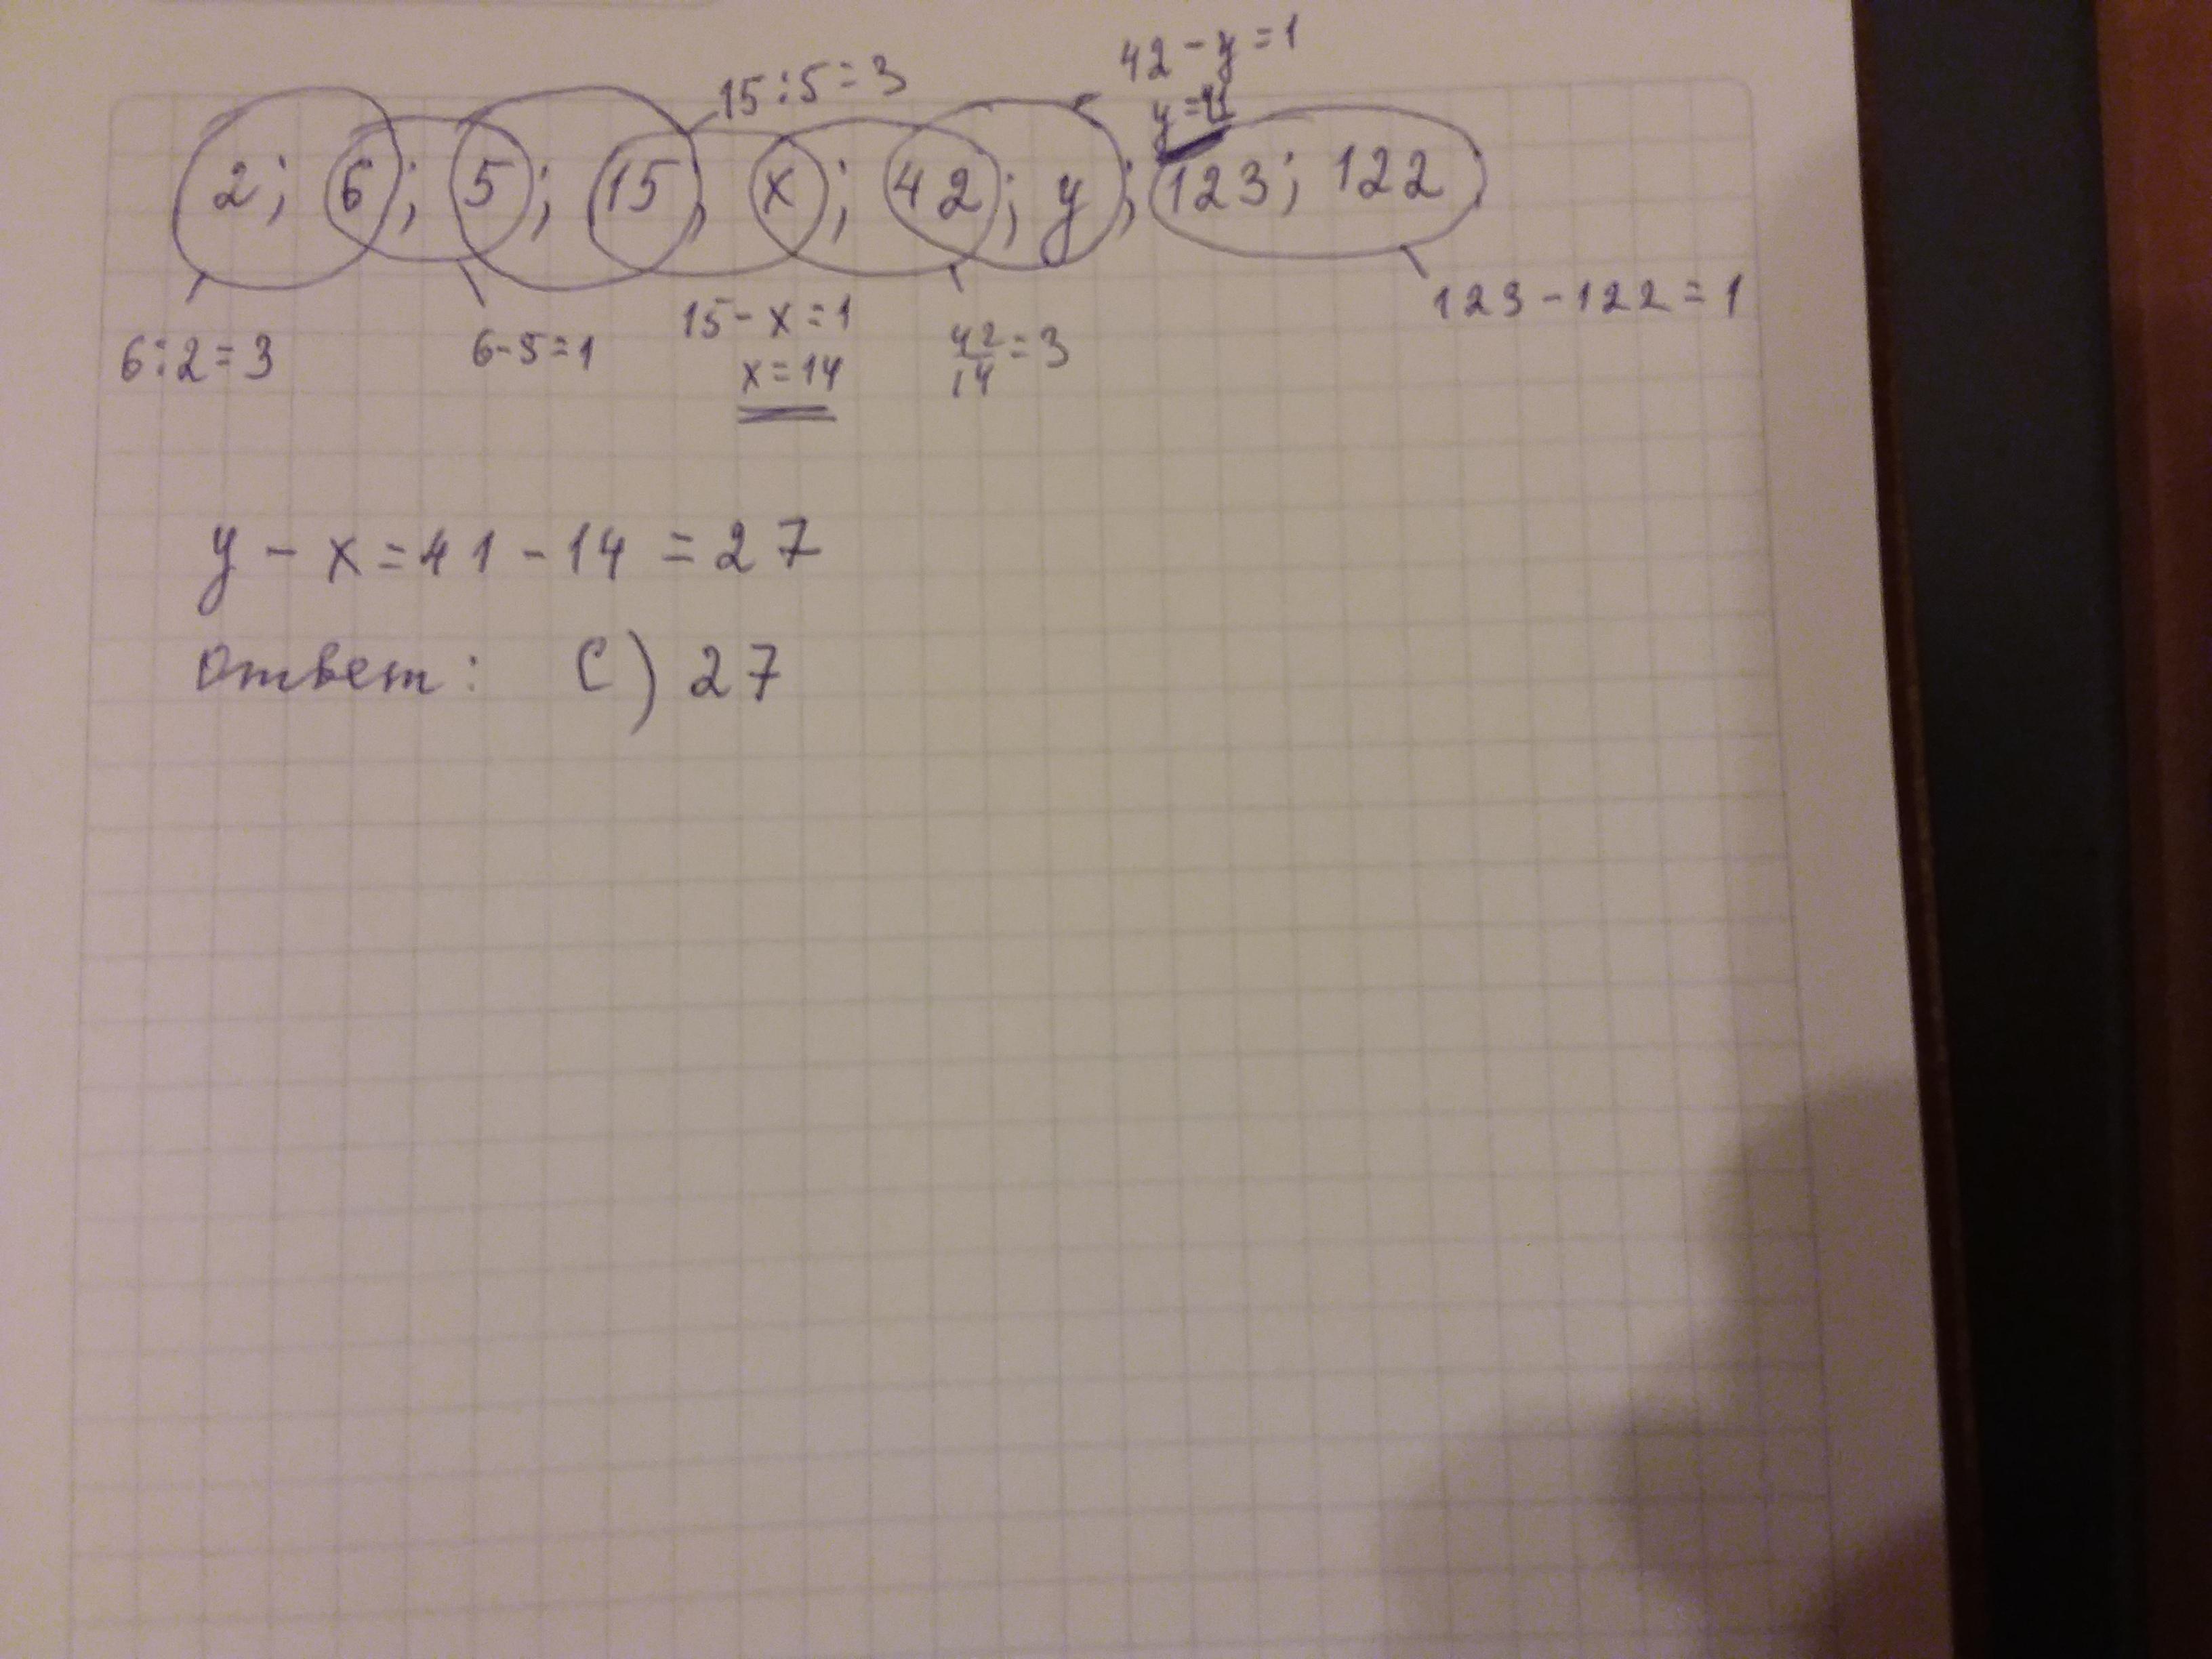 42-y=1
15:5=3
y=41
2; 6; 5; 15; x; 42; y; 123; 122
6:2=3
6-5=1
15-x=1
x=14
42/14=3
123-122=1
y-x=41-14=27
Ответ: C) 27